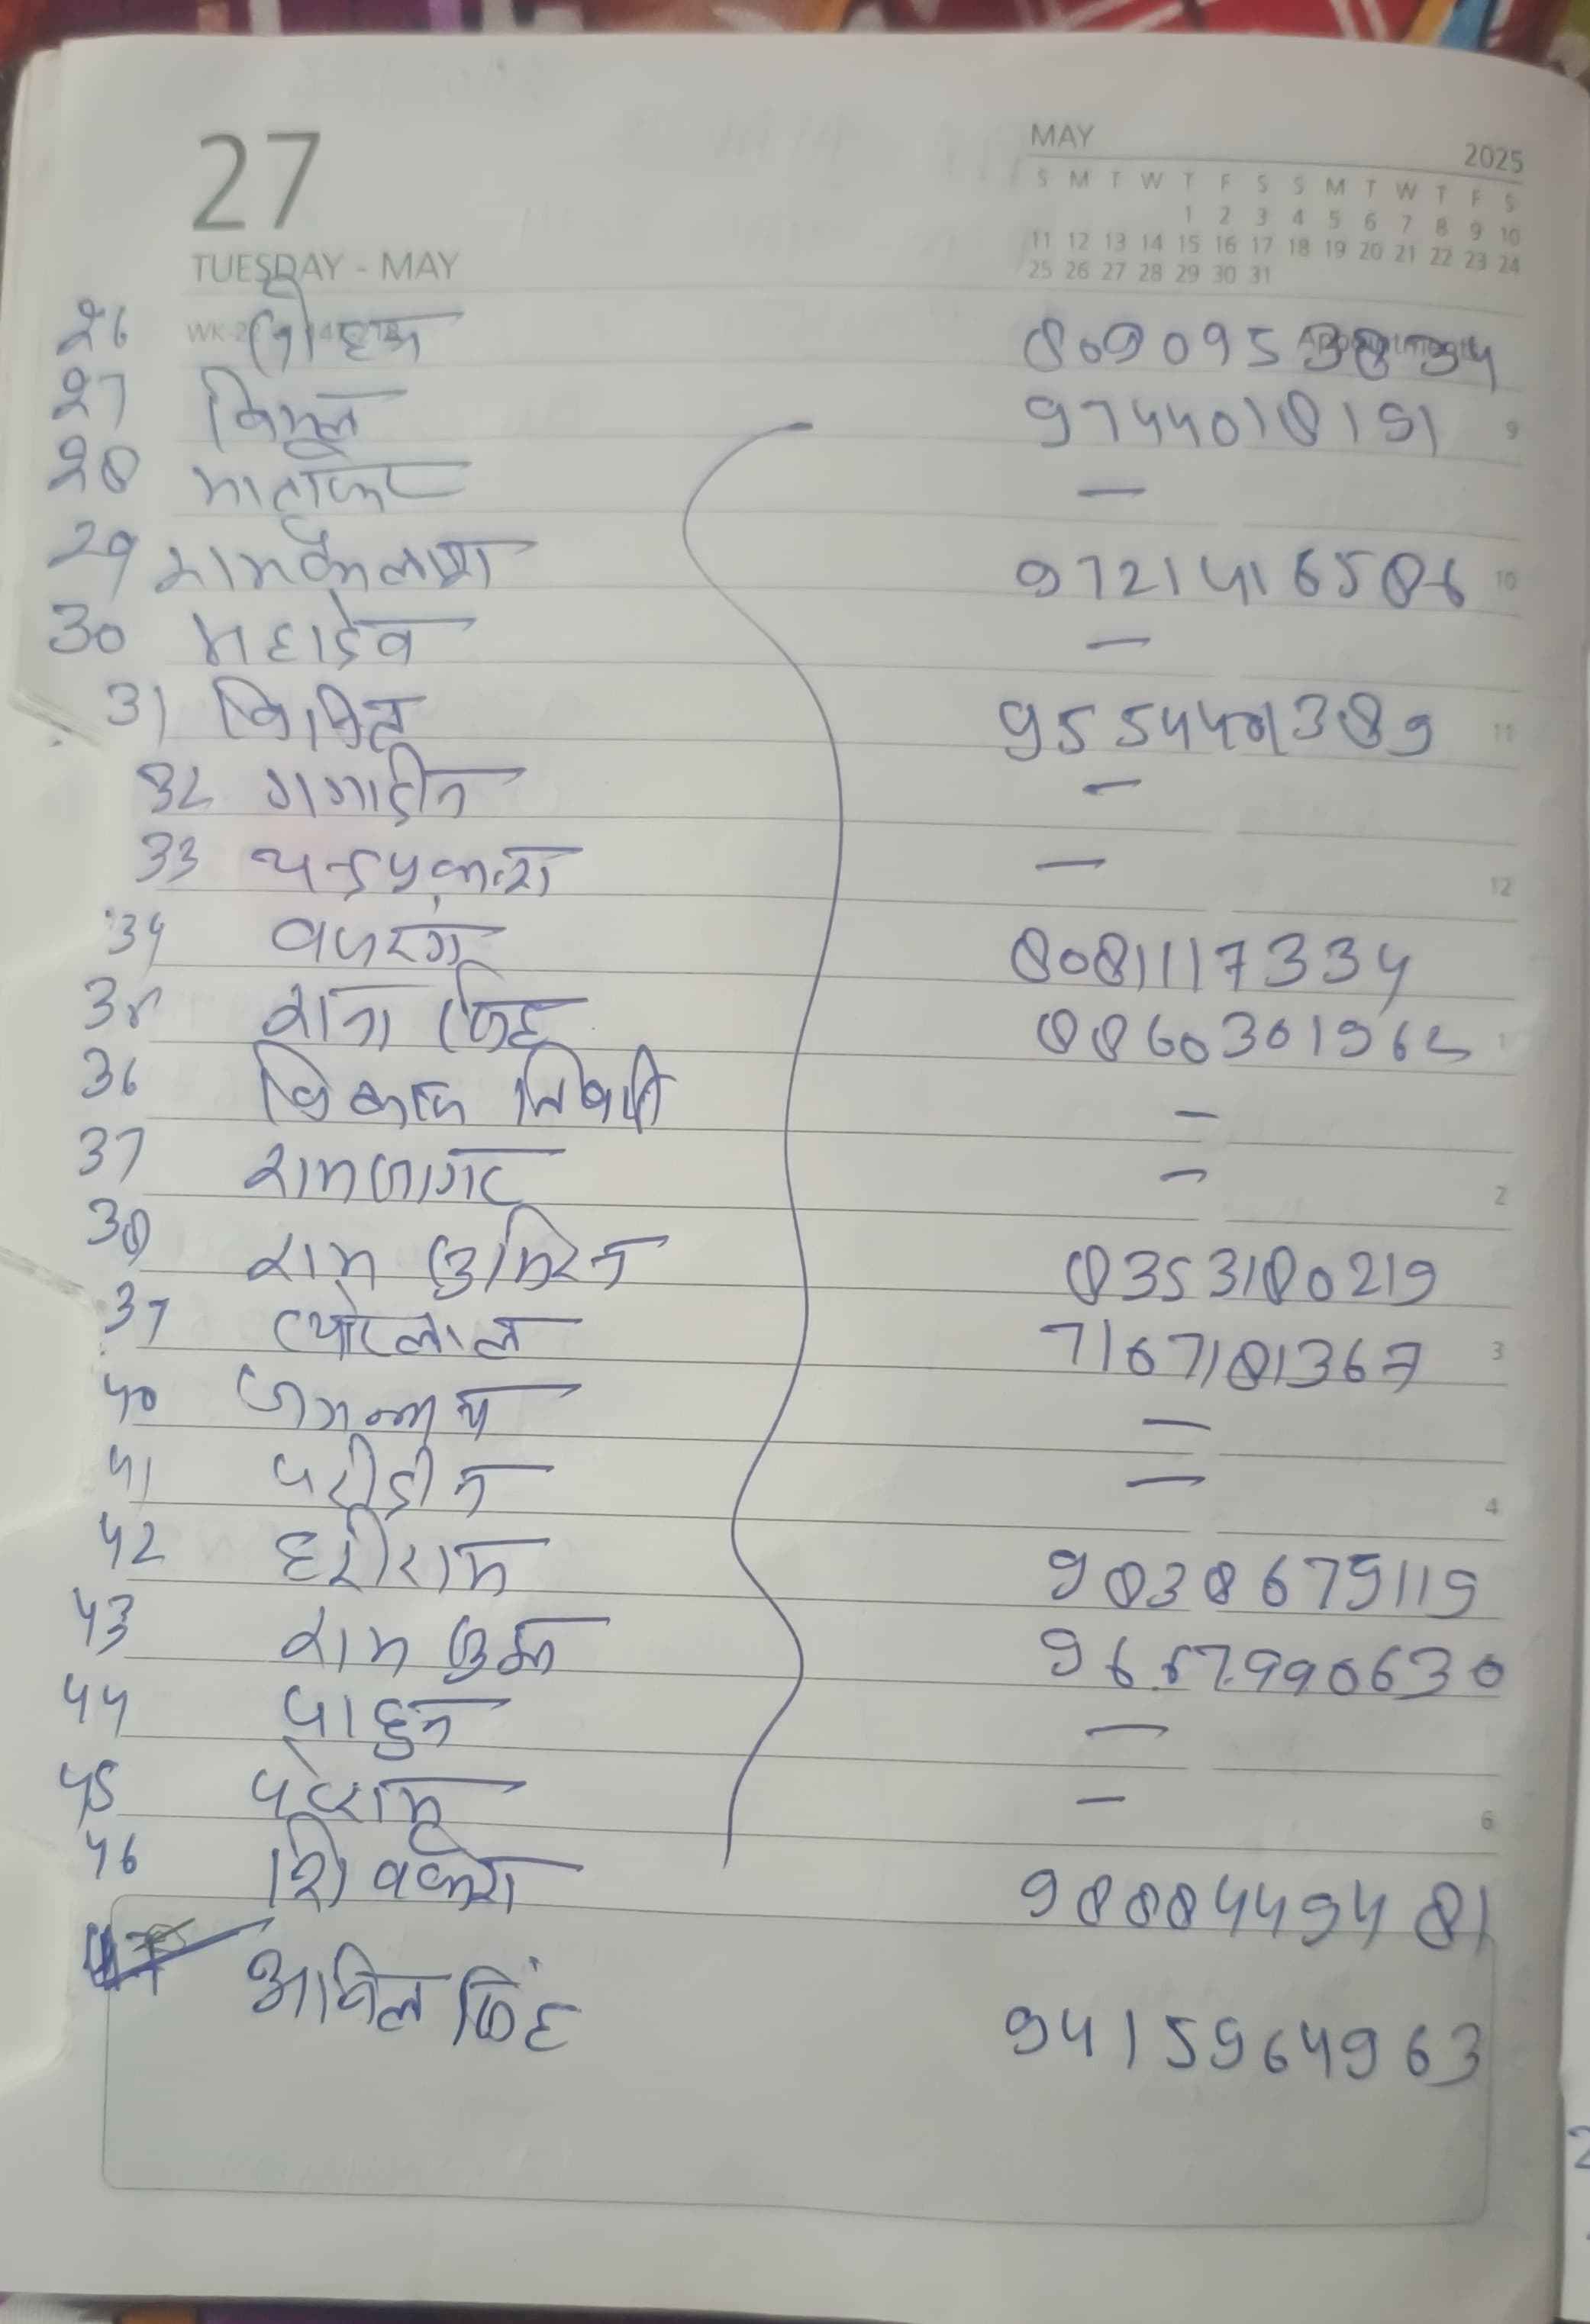 27
MAY 2025
TUESDAY - MAY
S M T W T F S S M T W T F S
1 2 3 4 5 6 7 8 9 10
11 12 13 14 15 16 17 18 19 20 21 22 23 24
25 26 27 28 29 30 31
26 8090953834
27 विमल 9744018191 9
28 —
29 रामकैलाश 9721416586 10
30 महादेव —
31 9554401389 11
32 गगादीन —
33 चन्द्रप्रकाश — 12
34 बजरंग 8081117334
35 8860301965 1
36 विकास —
37 — 2
38 राम सुमिरन 8353180219
39 प्यारेलाल 7167181367 3
40 जगन्नाथ —
41 —
42 हरीराम 9838679119 4
43 राम 9667990630
44 पाहुन —
45 — 6
46 9888449481
सिंह 9415964963